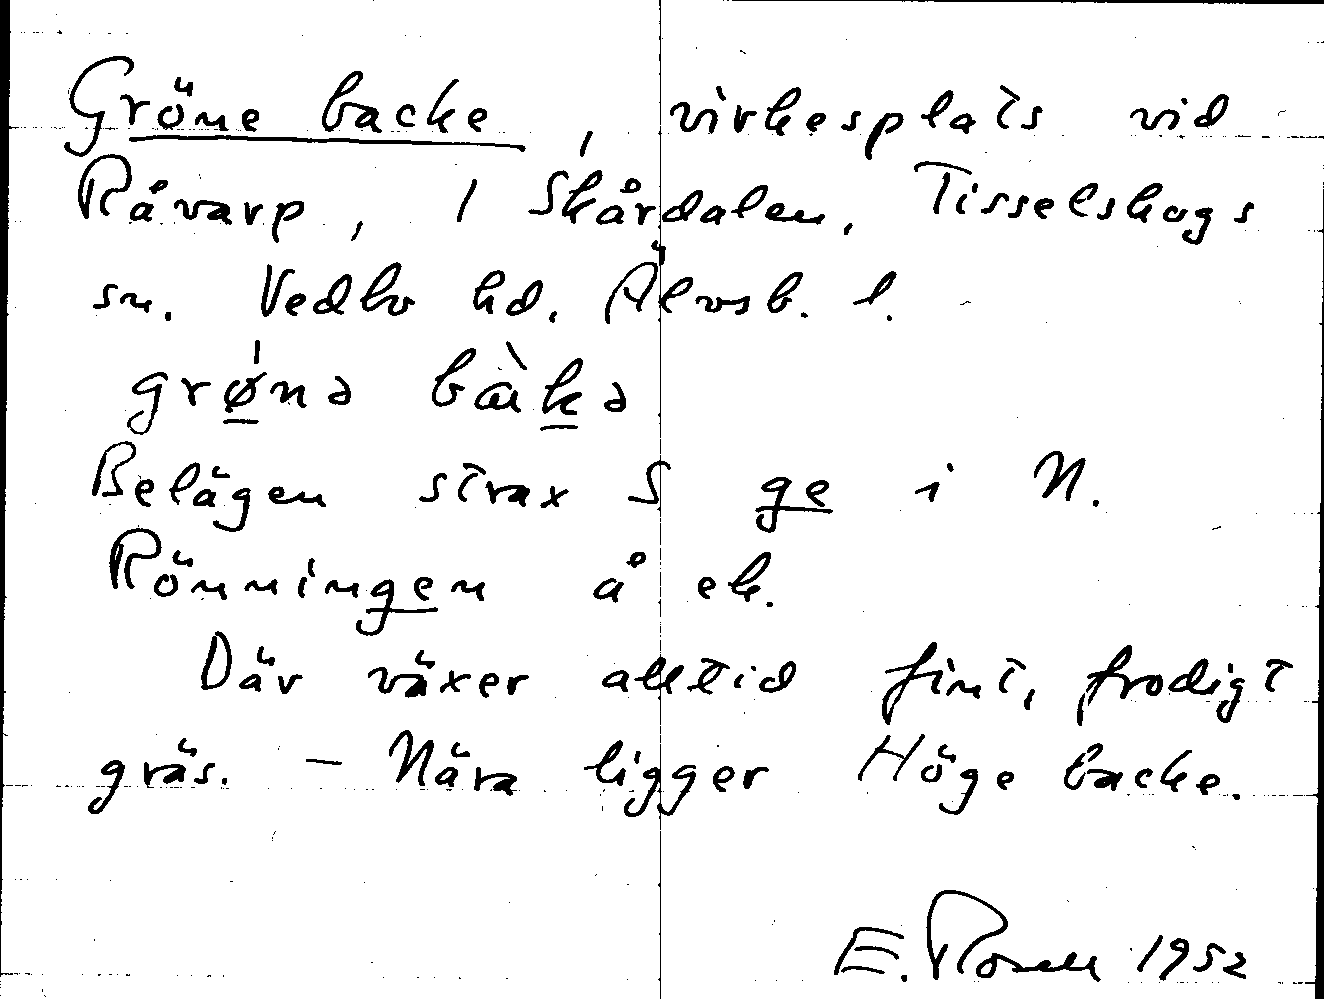 Gröne backe, virkesplats vid
Råvarp, 1 Skårdalen, Tisselskogs
sn. Vedbo hd. Älvsb. l.
grø̀nə bàkə
Belägen strax S ge i N.
Rönningen å ek.
Där växer alltid fint, frodigt
gräs. - Nära ligger Höge backe.
E. Rosell 1952